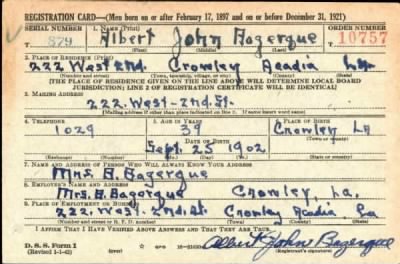 REGISTRATION CARD—(Men born on or after February 17, 1897 and on or before December 31, 1921)
SERIAL NUMBER 1. NAME (Print) ORDER NUMBER
T 879 Albert John Bagerque 10757
(First) (Middle) (Last)
2. PLACE OF RESIDENCE (Print)
222 West 2nd. Crowley Acadia La.
(Number and street) (Town, township, village, or city) (County) (State)
[THE PLACE OF RESIDENCE GIVEN ON THE LINE ABOVE WILL DETERMINE LOCAL BOARD
JURISDICTION; LINE 2 OF REGISTRATION CERTIFICATE WILL BE IDENTICAL]
3. MAILING ADDRESS
222. West-2nd. St.
[Mailing address if other than place indicated on line 2. If same insert word same]
4. TELEPHONE 5. AGE IN YEARS 6. PLACE OF BIRTH
1029 39 Crowley La
DATE OF BIRTH (Town or county)
Sept. 25 1902
(Exchange) (Number) (Mo.) (Day) (Yr.) (State or country)
7. NAME AND ADDRESS OF PERSON WHO WILL ALWAYS KNOW YOUR ADDRESS
Mrs. B. Bagerque
8. EMPLOYER'S NAME AND ADDRESS
Mrs. B. Bagerque Crowley, La.
9. PLACE OF EMPLOYMENT OR BUSINESS
222. West 2nd. St. Crowley Acadia La
(Number and street or R. F. D. number) (Town) (County) (State)
I AFFIRM THAT I HAVE VERIFIED ABOVE ANSWERS AND THAT THEY ARE TRUE.
D. S. S. Form 1
(Revised 1-1-42) (over) Albert John Bagerque
(Registrant's signature)